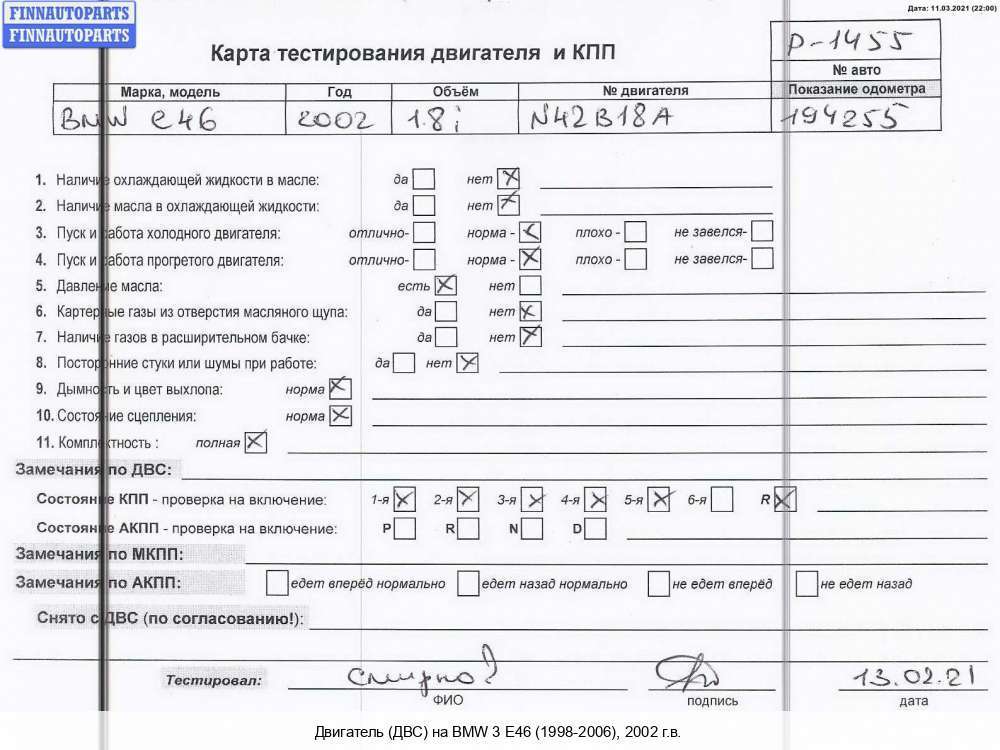 FINNAUTOPARTS
FINNAUTOPARTS
Дата: 11.03.2021 (22:00)
P-1455
Карта тестирования двигателя и КПП
№ авто
Марка, модель Год Объём № двигателя Показание одометра
BMW e46 2002 1.8i N42B18A 194255
1. Наличие охлаждающей жидкости в масле: да нет
2. Наличие масла в охлаждающей жидкости: да нет
3. Пуск и работа холодного двигателя: отлично- норма - плохо - не завелся-
4. Пуск и работа прогретого двигателя: отлично- норма - плохо - не завелся-
5. Давление масла: есть нет
6. Картерные газы из отверстия масляного щупа: да нет
7. Наличие газов в расширительном бачке: да нет
8. Посторонние стуки или шумы при работе: да нет
9. Дымность и цвет выхлопа: норма
10. Состояние сцепления: норма
11. Комплектность : полная
Замечания по ДВС:
Состояние КПП - проверка на включение: 1-я 2-я 3-я 4-я 5-я 6-я R
Состояние АКПП - проверка на включение: P R N D
Замечания по МКПП:
Замечания по АКПП: едет вперёд нормально едет назад нормально не едет вперёд не едет назад
Снято с ДВС (по согласованию!):
Тестировал: 13.02.21
ФИО подпись дата
Двигатель (ДВС) на BMW 3 E46 (1998-2006), 2002 г.в.